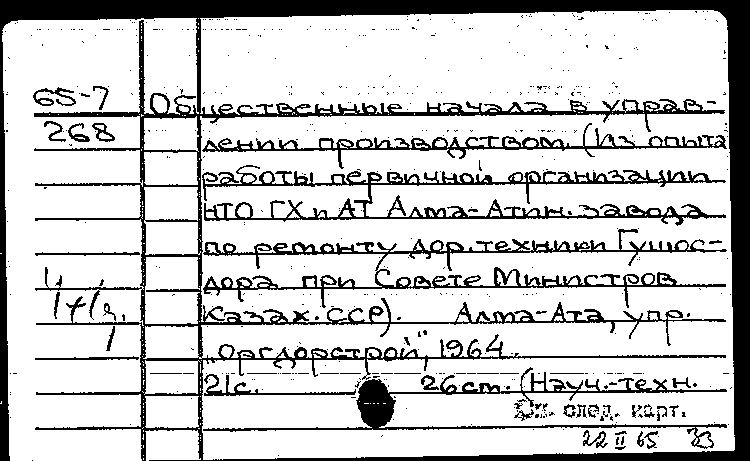 65-7 Общественные начала в управ-
268 лении производством. (Из опыта
работы первичной организации
НТО ГХ и АТ Алма-Атин. завода
по ремонту дор. техники Гушос-
дора при Совете Министров
Казах. ССР). Алма-Ата, упр.
„Оргдорстрой", 1964.
21с. 26 cm. (Науч.-техн.
См. след. карт.
22 II 65